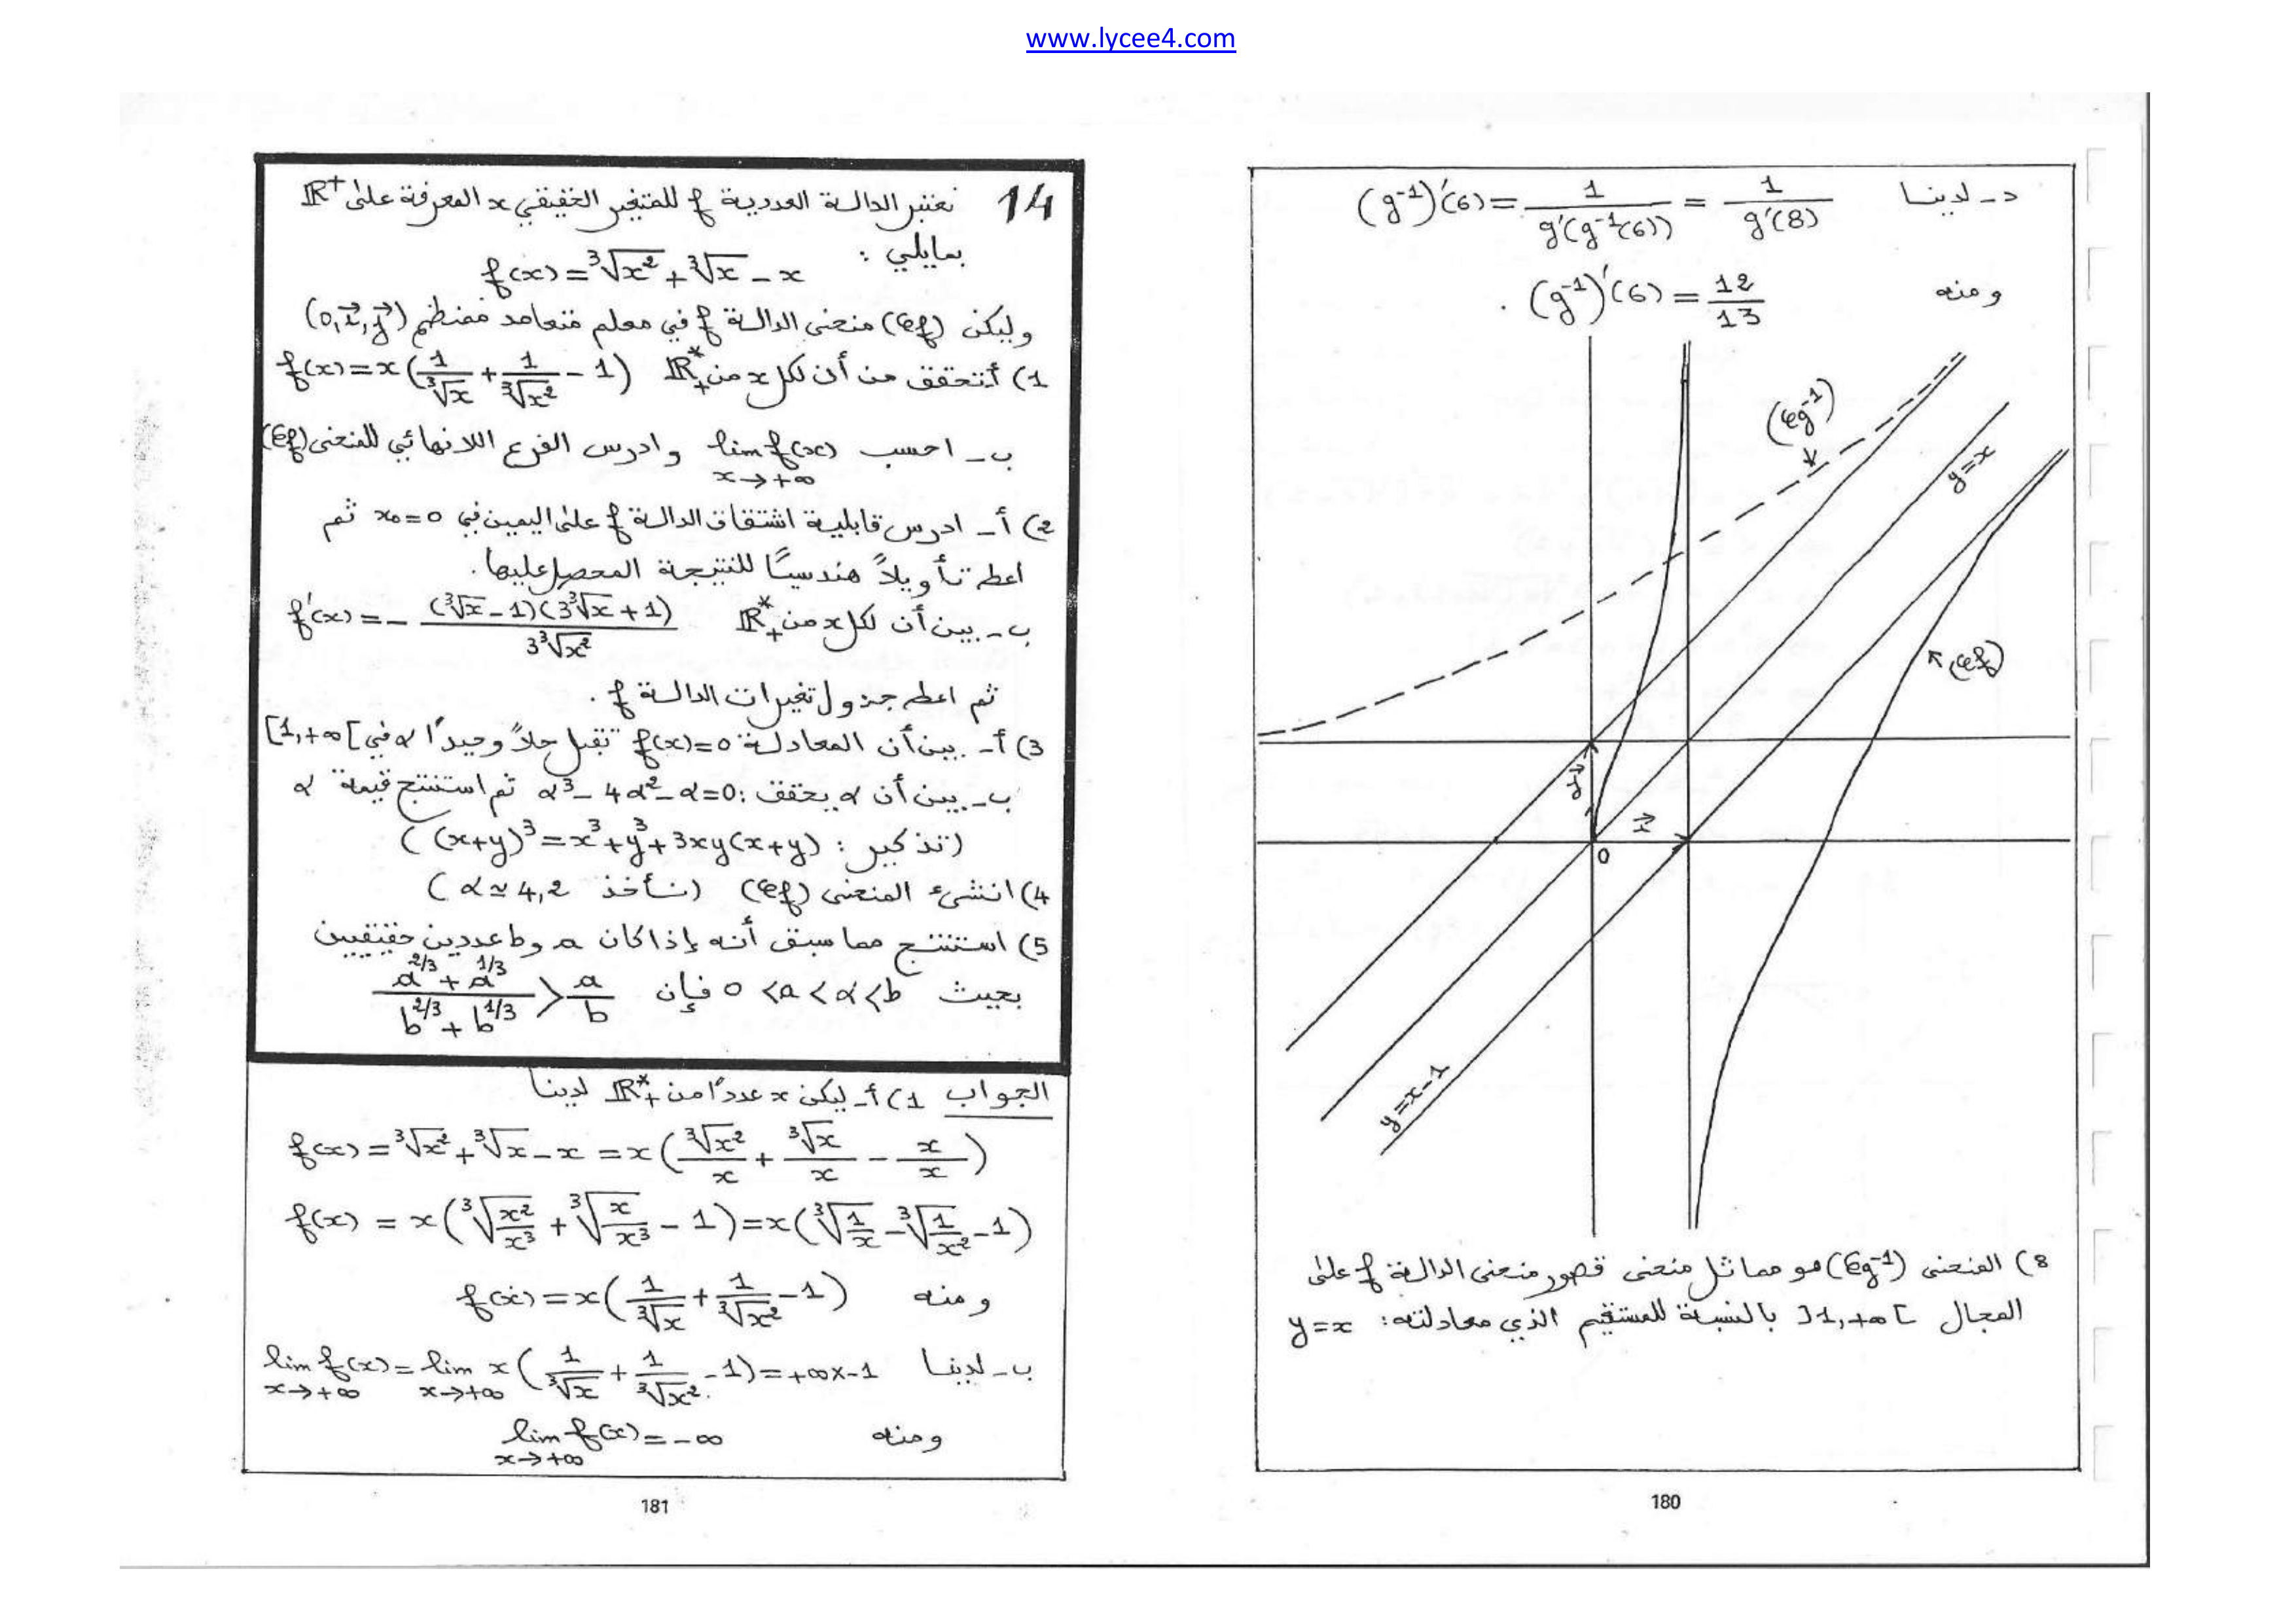 www.lycee4.com
د_ لدينا (g⁻¹)'(6) = 1/(g'(g⁻¹(6))) = 1/(g'(8))
ومنه (g⁻¹)'(6) = 12/13 .
(𝒞g⁻¹)
y=x
(𝒞f)
j⃗
i⃗
0
y=x-1
8) المنحنى (𝒞g⁻¹) هو مماثل منحنى قصور منحنى الدالة f على
المجال ]1,+∞[ بالنسبة للمستقيم الذي معادلته: y=x
180
14 نعتبر الدالة العددية f للمتغير الحقيقي x المعرفة على ℝ⁺
بمايلي : f(x) = ∛x² + ∛x - x
وليكن (𝒞f) منحنى الدالة f في معلم متعامد ممنظم (0,i⃗,j⃗)
1) أ تحقق من أن لكل x من ℝ₊* f(x) = x(1/∛x + 1/∛x² - 1)
ب_ احسب lim f(x) وادرس الفرع اللانهائي للمنحنى (𝒞f)
x→+∞
2) أ_ ادرس قابلية اشتقاق الدالة f على اليمين في x₀=0 ثم
اعط تأويلاً هندسيًا للنتيجة المحصل عليها.
ب_ بين أن لكل x من ℝ₊* f'(x) = - ((∛x - 1)(3∛x + 1))/(3∛x²)
ثم اعط جدول تغيرات الدالة f .
3) أ_ بين أن المعادلة f(x)=0 تقبل حلاً وحيدًا α في [1,+∞[
ب_ بين أن α يحقق : α³- 4α²- α=0 ثم استنتج قيمة α
(تذكير : (x+y)³ = x³ + y³ + 3xy(x+y) )
4) انشئ المنحنى (𝒞f) (نأخذ α ≃ 4,2 )
5) استنتج مما سبق أنه إذا كان a و b عددين حقيقيين
بحيث 0 <a < α < b فإن (a^2/3 + a^1/3)/(b^2/3 + b^1/3) > a/b
الجواب 1) أ_ ليكن x عددًا من ℝ₊* لدينا
f(x) = ∛x² + ∛x - x = x(∛x²/x + ∛x/x - x/x)
f(x) = x(∛(x²/x³) + ∛(x/x³) - 1) = x(∛(1/x) - ∛(1/x²) - 1)
ومنه f(x) = x(1/∛x + 1/∛x² - 1)
ب_ لدينا lim f(x) = lim x(1/∛x + 1/∛x² - 1) = +∞x-1
x→+∞ x→+∞
ومنه lim f(x) = -∞
x→+∞
181